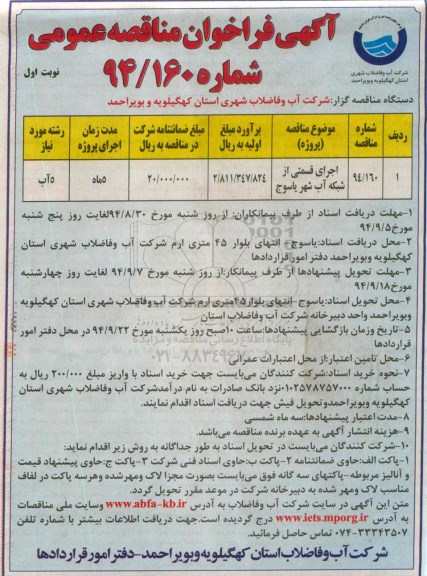 آگهی فراخوان مناقصه عمومی
شماره ۹۴/۱۶۰
نوبت اول
شرکت آب وفاضلاب شهری
استان کهگیلویه وبویراحمد
دستگاه مناقصه گزار: شرکت آب وفاضلاب شهری استان کهگیلویه و بویراحمد
ردیف | شماره مناقصه | موضوع مناقصه (پروژه) | برآورد مبلغ اولیه به ریال | مبلغ ضمانتنامه شرکت در مناقصه به ریال | مدت زمان اجرای پروژه | رشته مورد نیاز
۱ | ۹۴/۱۶۰ | اجرای قسمتی از شبکه آب شهر یاسوج | ۲/۸۱۱/۳۴۷/۸۲۴ | ۲۰/۰۰۰/۰۰۰ | ۵ماه | ۵آب
۱-مهلت دریافت اسناد از طرف پیمانکاران: از روز شنبه مورخ ۹۴/۸/۳۰لغایت روز پنج شنبه
مورخ۹۴/۹/۵
۲-محل دریافت اسناد:یاسوج- انتهای بلوار ۴۵ متری ارم شرکت آب وفاضلاب شهری استان
کهگیلویه وبویراحمد دفتر امور قراردادها
۳-مهلت تحویل پیشنهادها از طرف پیمانکار:از روز شنبه مورخ ۹۴/۹/۷ لغایت روز چهارشنبه
مورخ۹۴/۹/۱۸
۴-محل تحویل اسناد:یاسوج-انتهای بلوار۴۵متری ارم شرکت آب وفاضلاب شهری استان کهگیلویه
وبویراحمد واحد دبیرخانه شرکت آب وفاضلاب استان
۵-تاریخ وزمان بازگشایی پیشنهادها:ساعت ۱۰صبح روز یکشنبه مورخ ۹۴/۹/۲۲ در محل دفتر امور
قراردادها
پایگاه اطلاع رسانی مناقصه و مزایده
۶-محل تامین اعتبار:از محل اعتبارات عمرانی
۷-نحوه خرید اسناد:شرکت کنندگان می‌بایست جهت خرید اسناد با واریز مبلغ ۲۰۰/۰۰۰ ریال به
حساب شماره ۰۱۰۲۵۷۸۷۵۷۰۰۰نزد بانک صادرات به نام درآمدشرکت آب وفاضلاب شهری استان
کهگیلویه وبویراحمدوتحویل فیش جهت دریافت اسناد اقدام نمایند.
۸-مدت اعتبار پیشنهادها:سه ماه شمسی
۹-هزینه انتشار آگهی به عهده برنده مناقصه می‌باشد.
۱۰-شرکت کنندگان می‌بایست در تحویل اسناد به طور جداگانه به روش زیر اقدام نماید:
۱-پاکت الف:حاوی ضمانتنامه ۲-پاکت ب:حاوی اسناد فنی شرکت ۳-پاکت ج:حاوی پیشنهاد قیمت
و آنالیز مربوطه-پاکتهای سه گانه فوق می‌بایست بصورت مجزا لاک ومهرشده وهرسه پاکت در لفاف
مناسب لاک ومهر شده به دبیرخانه شرکت در موعد مقرر تحویل گردد.
متن این آگهی در سایت شرکت آب وفاضلاب به آدرس www.abfa-kb.ir وسایت ملی مناقصات
به آدرس www.iets.mporg.ir درج گردیده است.جهت دریافت اطلاعات بیشتر با شماره تلفن
۰۷۴-۳۳۳۴۳۵۰۷ تماس حاصل فرمائید.
شرکت آب وفاضلاب استان کهگیلویه وبویراحمد-دفتر امور قراردادها